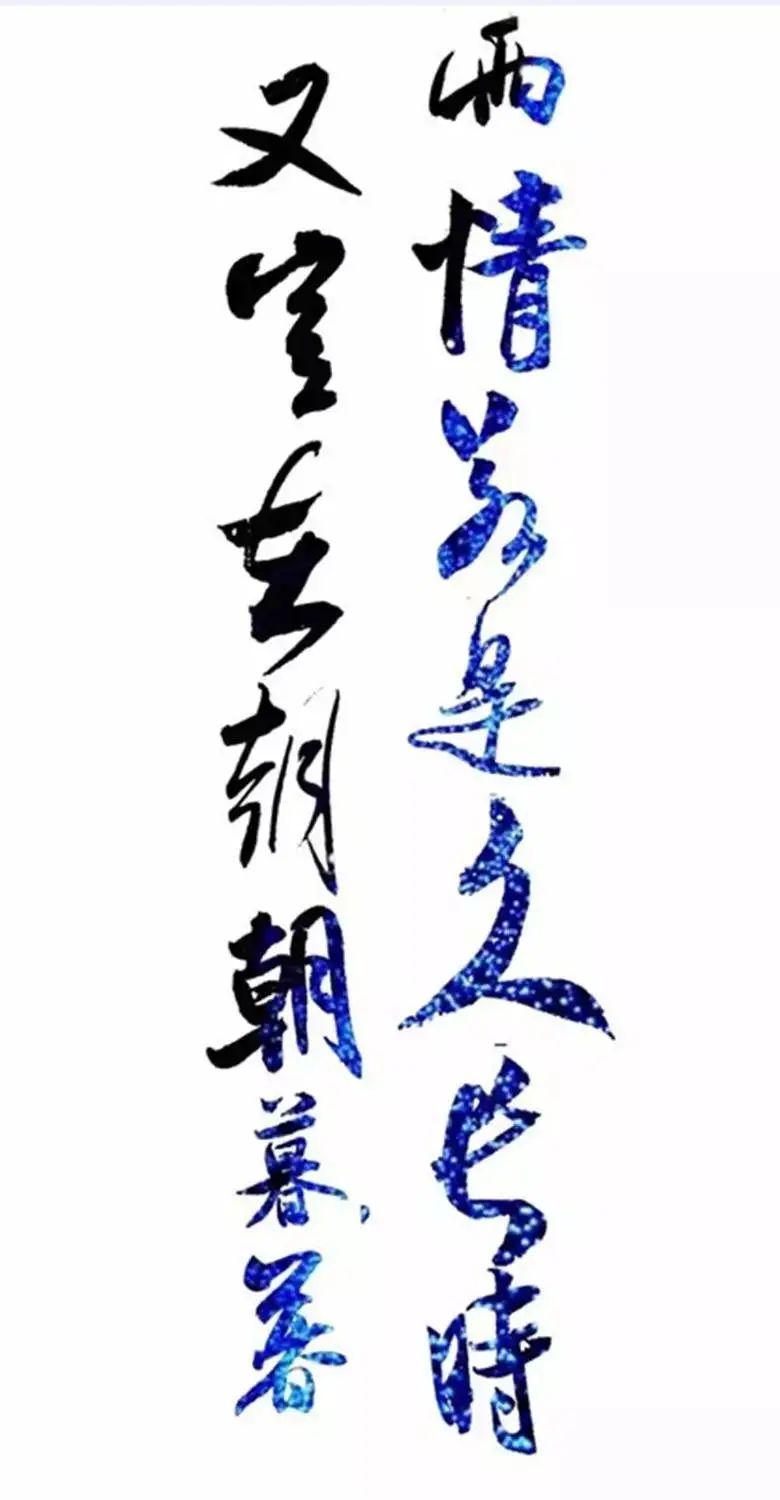 两情若是久长時
又岂在朝朝暮暮